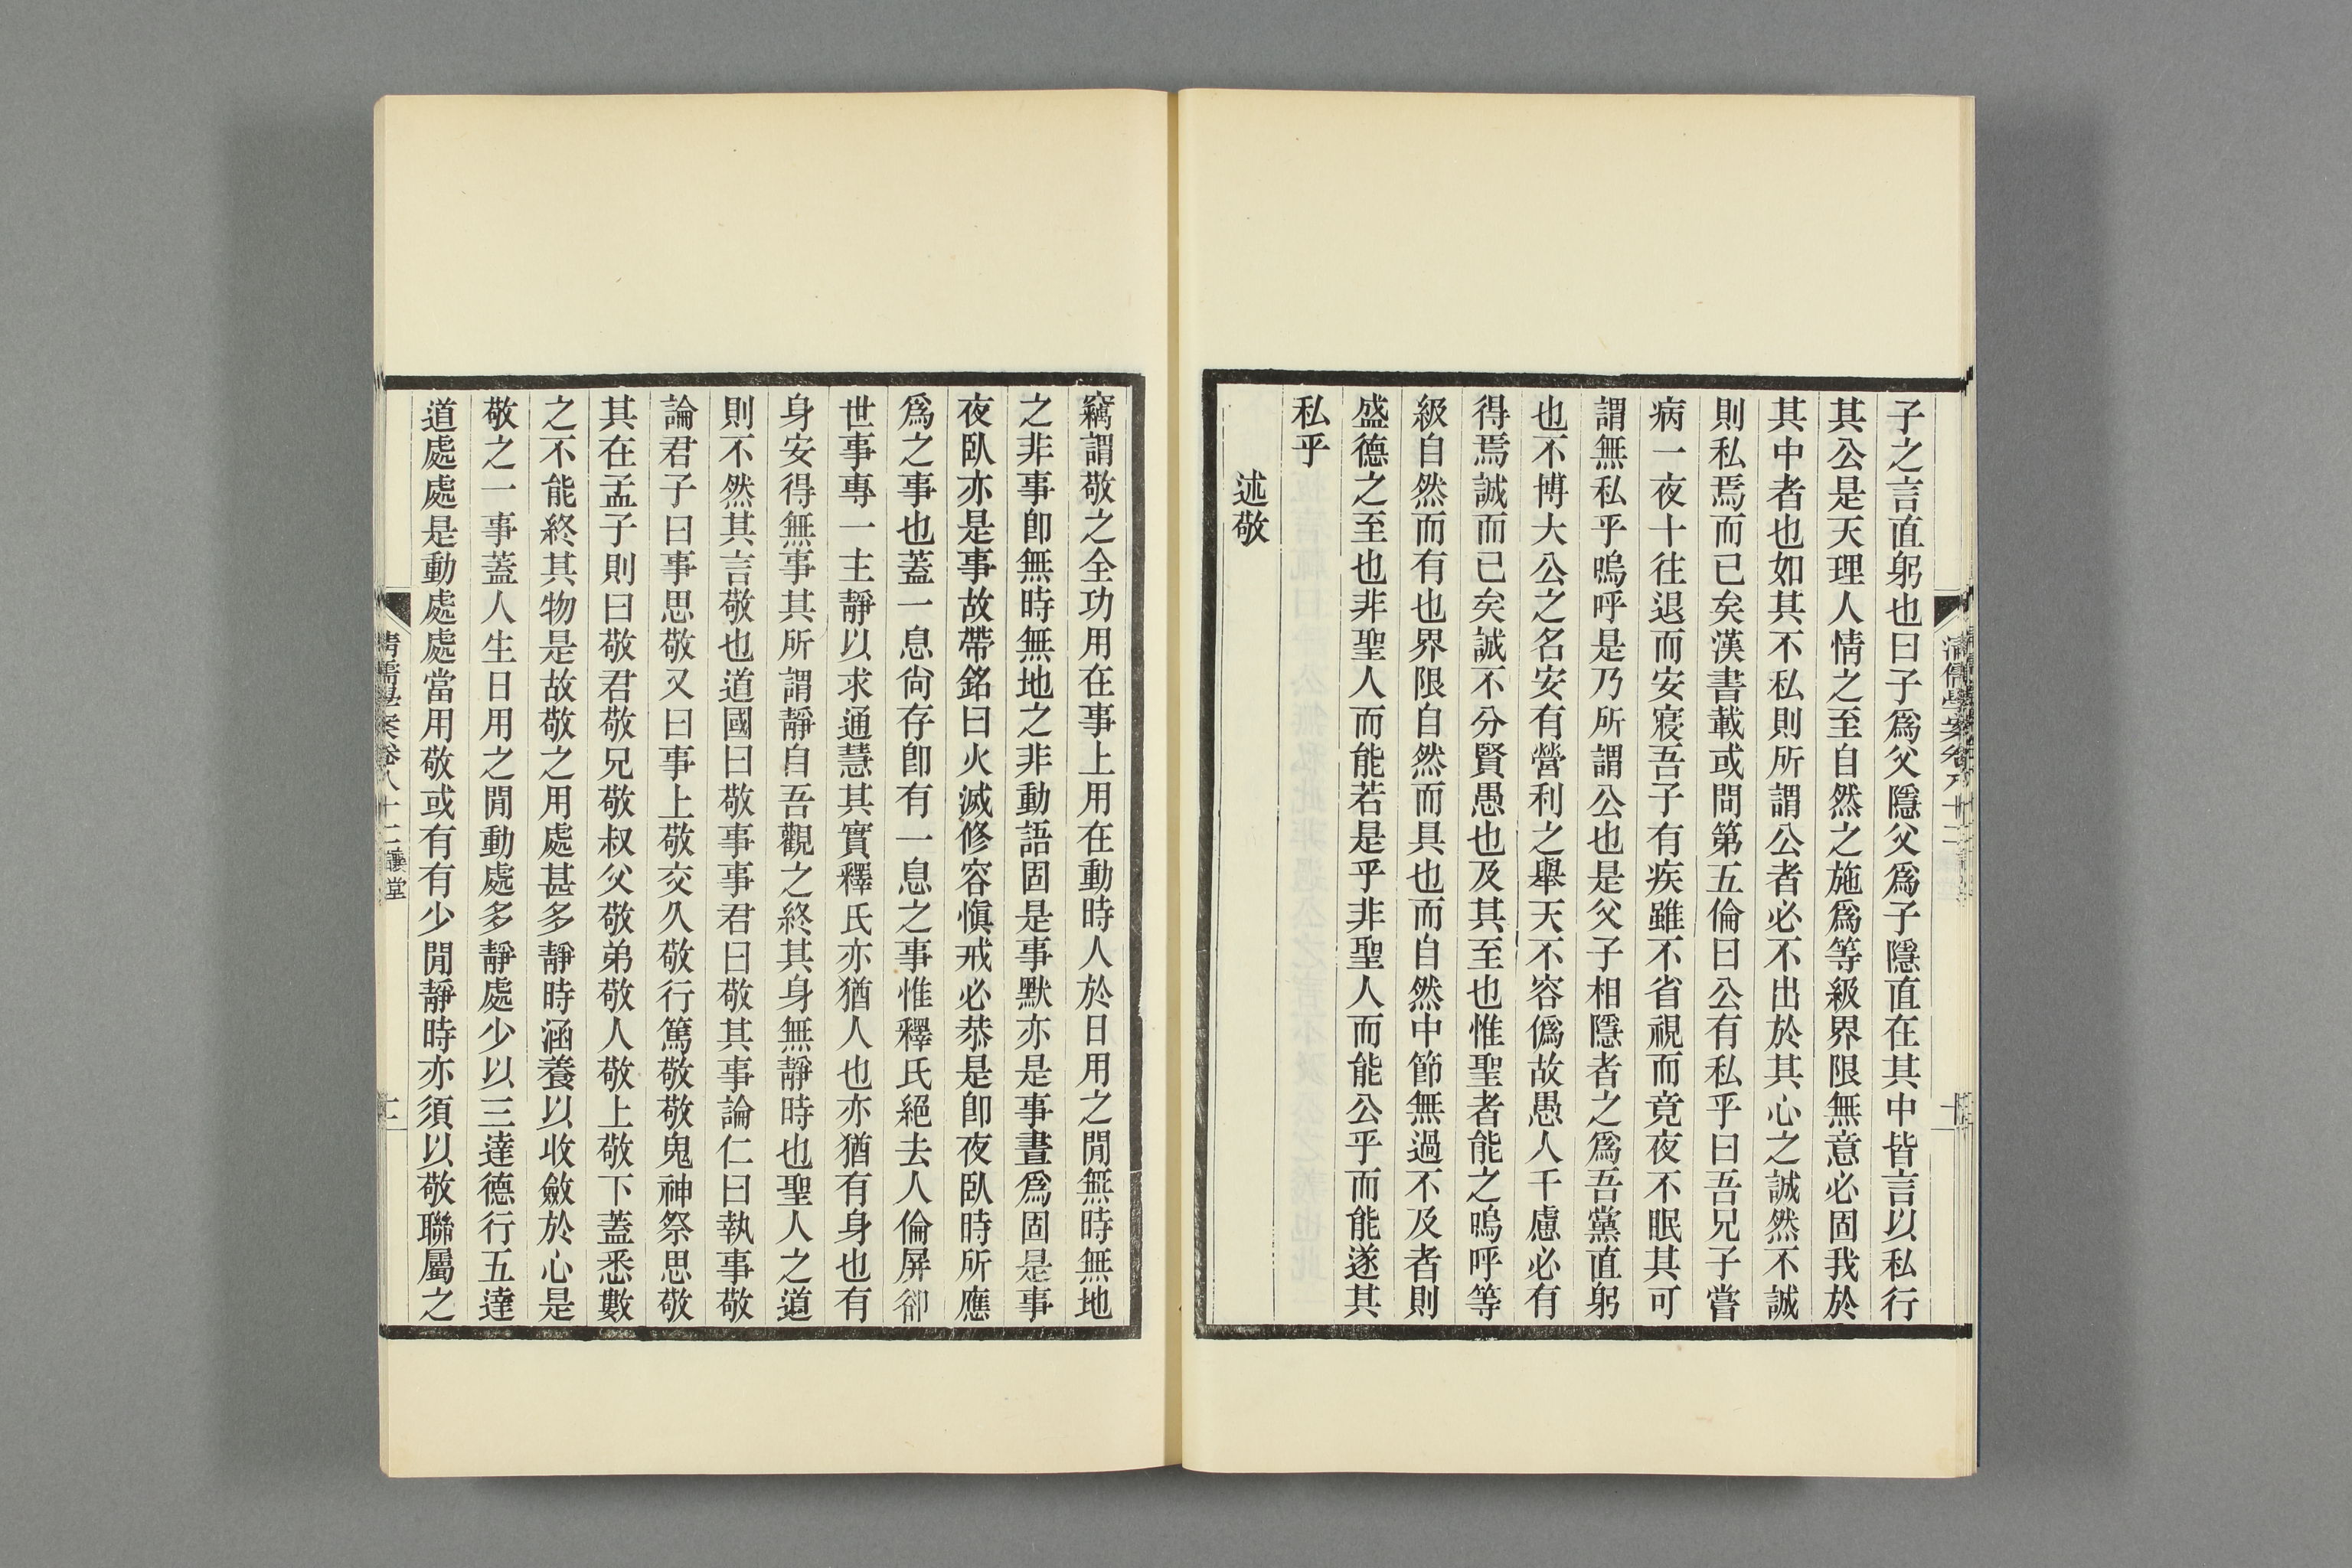 子之言直躬也曰子爲父隱父爲子隱直在其中皆言以私行
其公是天理人情之至自然之施爲等級界限無意必固我於
其中者也如其不私則所謂公者必不出於其心之誠然不誠
則私焉而已矣漢書載或問第五倫曰公有私乎曰吾兄子嘗
病一夜十往退而安寢吾子有疾雖不省視而竟夜不眠其可
謂無私乎嗚呼是乃所謂公也是父子相隱者之爲吾黨直躬
也不博大公之名安有營利之舉天不容僞故愚人千慮必有
得焉誠而已矣誠不分賢愚也及其至也惟聖者能之嗚呼等
級自然而有也界限自然而具也而自然中節無過不及者則
盛德之至也非聖人而能若是乎非聖人而能公乎而能遂其
私乎
述敬
竊謂敬之全功用在事上用在動時人於日用之閒無時無地
之非事卽無時無地之非動語固是事默亦是事晝爲固是事
夜臥亦是事故帶銘曰火滅修容愼戒必恭是卽夜臥時所應
爲之事也蓋一息尙存卽有一息之事惟釋氏絕去人倫屏卻
世事專一主靜以求通慧其實釋氏亦猶人也亦猶有身也有
身安得無事其所謂靜自吾觀之終其身無靜時也聖人之道
則不然其言敬也道國曰敬事事君曰敬其事論仁曰執事敬
論君子曰事思敬又曰事上敬交久敬行篤敬敬鬼神祭思敬
其在孟子則曰敬君敬兄敬叔父敬弟敬人敬上敬下蓋悉數
之不能終其物是故敬之用處甚多靜時涵養以收斂於心是
敬之一事蓋人生日用之閒動處多靜處少以三達德行五達
道處處是動處處當用敬或有有少閒靜時亦須以敬聯屬之
清儒學案卷八十二